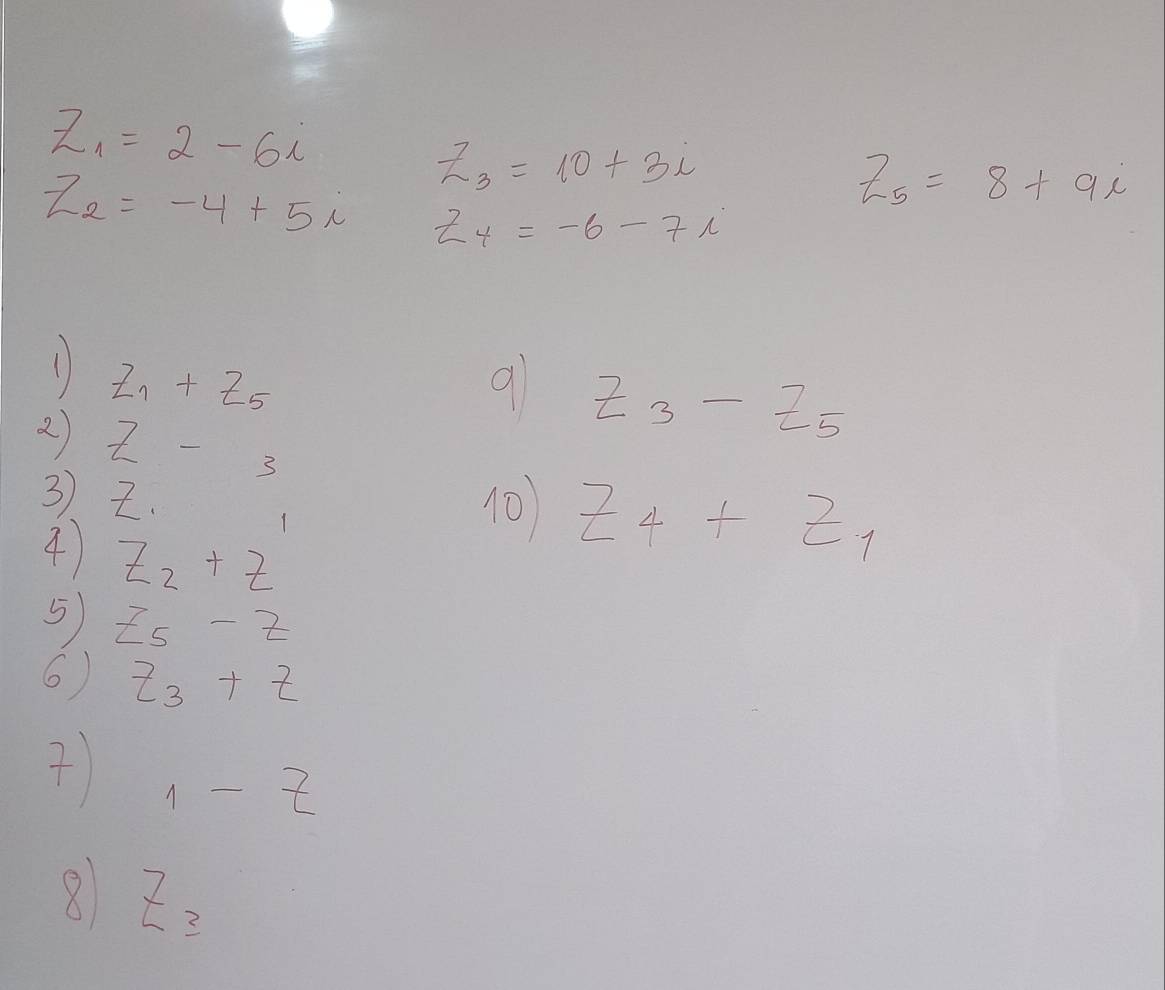 Z₁ = 2 - 6i
Z₂ = -4 + 5i
Z₃ = 10 + 3i
Z₄ = -6 - 7i
Z₅ = 8 + 9i
1) Z₁ + Z₅
2) Z - ₃
3) Z. ₁
4) Z₂ + Z
5) Z₅ - Z
6) Z₃ + Z
7) ₁ - Z
8) Z₃
9) Z₃ - Z₅
10) Z₄ + Z₁